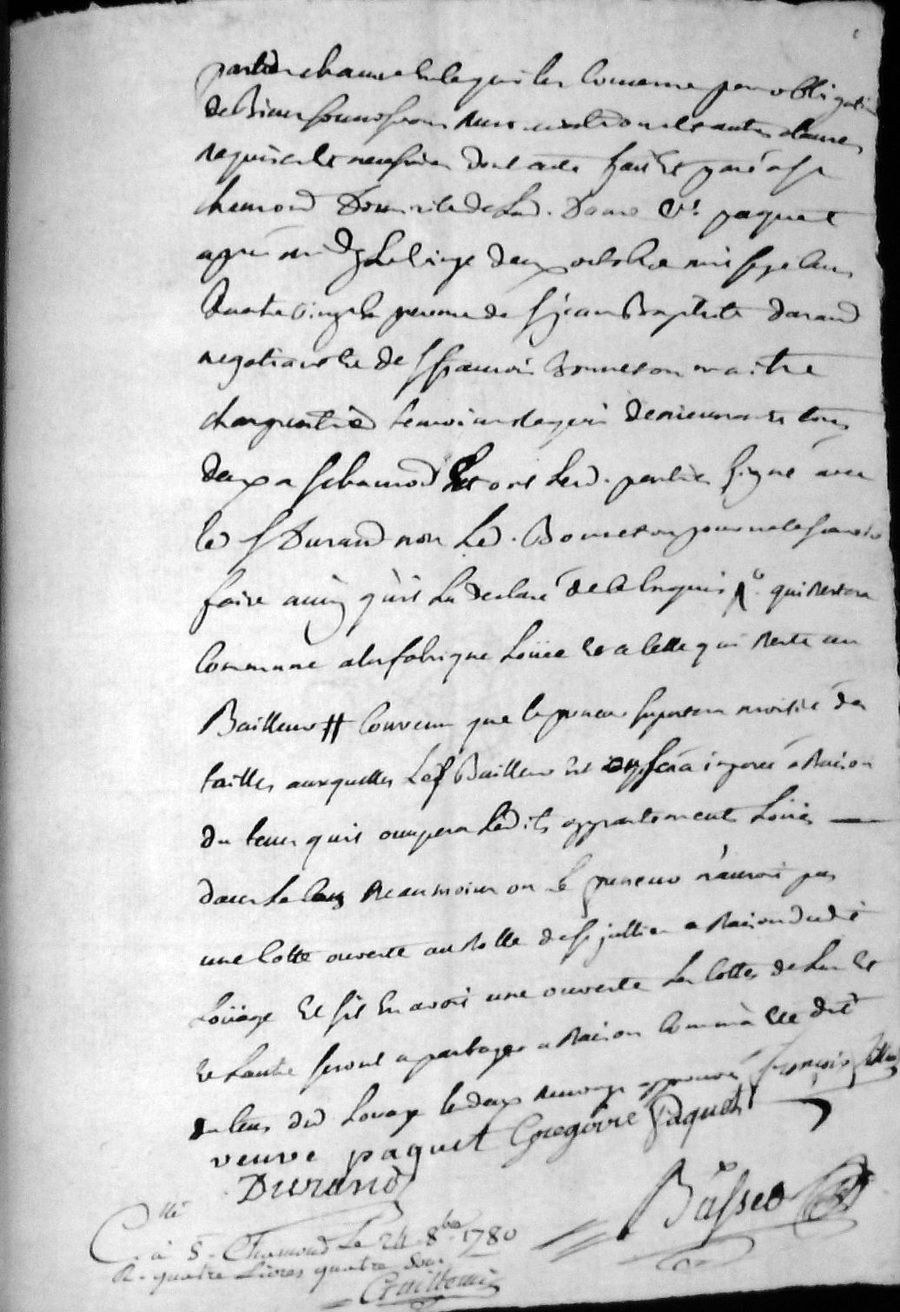 parties chacune en ce qui les concerne par obligation
de biens soumissions renonciations et autres clauses
requises et necessaires dont acte fait et passé a St
chamond Domicile de lad. Dame Ve. paquet
après midy Le vingt deux octobre mil sept cent
quatre vingt en presence de Sr jean Baptiste Durand
negotiant et de Sr françois Bonneton maitre
charpentier temoins requis demeurants tous
deux a St chamond et ont Lesd. parties signé avec
le Sr Durand non Led. Bonneton pour ne le scavoir
faire ainsy qu'il l'a declaré de ce enquis qui restera
Commune a la fabrique Loüée et a celle qui reste au
Bailleur # Convenu que le preneur suportera moitié des
tailles auxquelles Led Bailleur est ou sera imposé a Raison
du tems qu'il occupera Lesdits appartements Loüés —
dans le cas neanmoins ou le preneur n'auroit pas
une Cotte ouverte au Rolle de St jullien a Raison dudt
Loüage Et s'il En avoit une ouverte Les Cottes de L'un Et
et L'autre seront a partager a Raison Comme a été dit
du tems dud Louage les deux renvoys approuvés françois
veuve paquet Gregoire Paquet
Durand
Basset
Cllé à St. Chamond Le 24 8bre 1780
R. quatre Livres quatre Sous